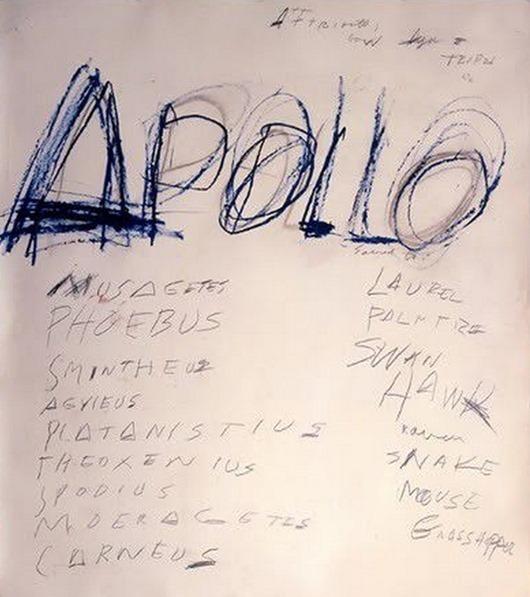 ATTRIBUTES,
BOW
TRIPOD
APOLLO
Sacred
MUSAGETES
PHOEBUS
SMINTHEUS
AGYIEUS
PLATANISTIUS
THEOXENIUS
SPODIUS
MOERAGETES
CARNEUS
LAUREL
PALM TREE
SWAN
HAWK
raven
SNAKE
MOUSE
GRASSHOPPER